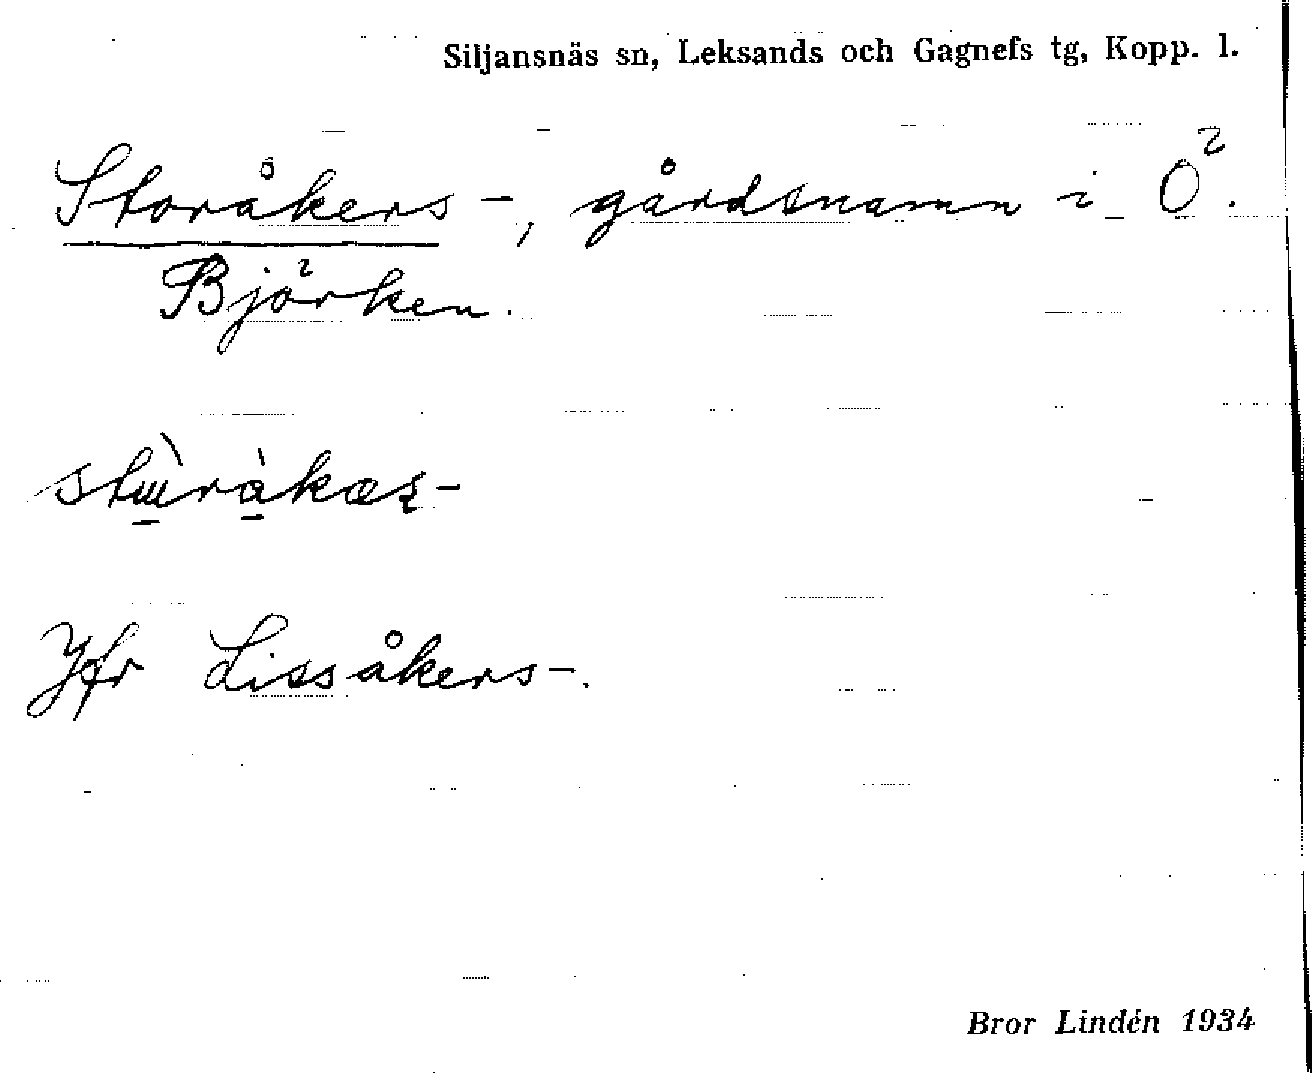 Siljansnäs sn, Leksands och Gagnefs tg, Kopp. l.
Storåkers-, gårdsnamn i Ö.
Björken.
Jfr Lissåkers-.
Bror Lindén 1934